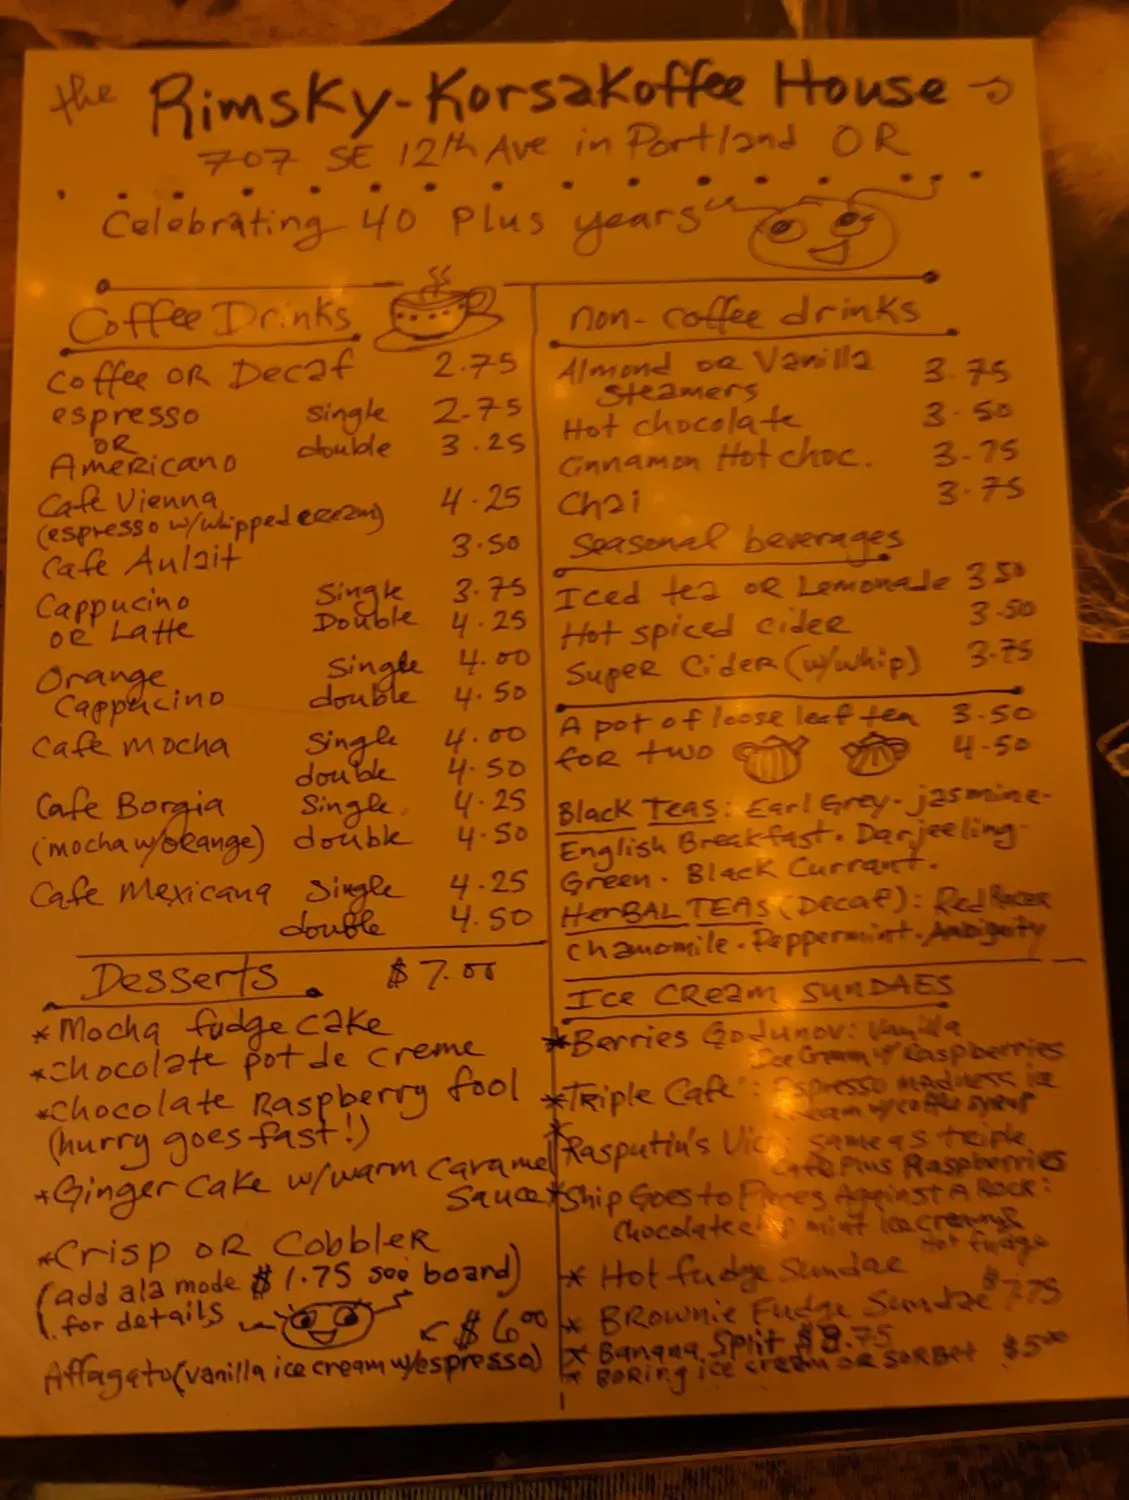 the Rimsky-Korsakoffee House
707 SE 12th Ave in Portland OR
Celebrating 40 Plus years
Coffee Drinks
Coffee OR Decaf 2.75
espresso single 2.75
OR
Americano double 3.25
Cafe Vienna 4.25
(espresso w/whipped cream)
Cafe Aulait 3.50
Cappucino Single 3.75
OR Latte Double 4.25
Orange Single 4.00
Cappucino double 4.50
Cafe mocha Single 4.00
double 4.50
Cafe Borgia Single 4.25
(mocha w/orange) double 4.50
Cafe Mexicana Single 4.25
double 4.50
Desserts $7.00
*Mocha fudge cake
*chocolate pot de creme
*chocolate Raspberry fool
(hurry goes fast!)
*Ginger cake w/warm caramel
sauce
*Crisp OR Cobbler
(add ala mode $1.75 see board)
for details
$6.00
Affagato (vanilla ice cream w/espresso)
non-coffee drinks
Almond OR Vanilla 3.75
Steamers
Hot chocolate 3.50
Cinnamon Hot choc. 3.75
Chai 3.75
Seasonal beverages
Iced tea OR Lemonade 3.50
Hot spiced cider 3.50
Super Cider (w/whip) 3.75
A pot of loose leaf tea 3.50
for two 4.50
Black Teas: Earl Grey. jasmine-
English Breakfast. Darjeeling-
Green. Black Currant.
HerBAL TEAs (Decaf): Red Racer
Chamomile. Peppermint. Ambiguity
Ice CReam SUNDAES
*Berries Godunov: Vanilla
Ice Cream w/ Raspberries
*Triple Cafe': Espresso madness ice
cream w/coffee syrup
*Rasputin's same as triple
Cafe Plus Raspberries
*Ship Goes to Against A Rock:
Chocolate mint ice cream &
Hot fudge
* Hot fudge Sundae
* BRownie Fudge Sundae $7.75
* Banana Split $8.75
* BORing ice cream OR SORBet $5.00